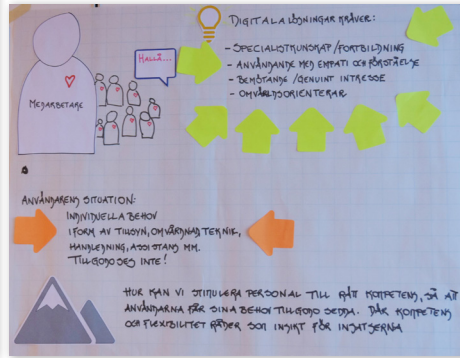 DIGITALA LÖSNINGAR KRÄVER:
- SPECIALISTKUNSKAP/FORTBILDNING
- ANVÄNDANDE MED EMPATI OCH FÖRSTÅELSE
- BEMÖTANDE/GENUINT INTRESSE
- OMVÄRLDSORIENTERAR
HALLÅ...
MEDARBETARE
ANVÄNDARENS SITUATION:
INDIVIDUELLA BEHOV
I FORM AV TILLSYN, OMVÅRDNAD TEKNIK,
HANDLEDNING, ASSISTANS MM.
TILLGODOSES INTE!
HUR KAN VI STIMULERA PERSONAL TILL RÄTT KOMPETENS, SÅ ATT
ANVÄNDARNA FÅR SINA BEHOV TILLGODOSEDDA. DÄR KOMPETENS
OCH FLEXIBILITET RÅDER SOM INSIKT FÖR INSATSERNA